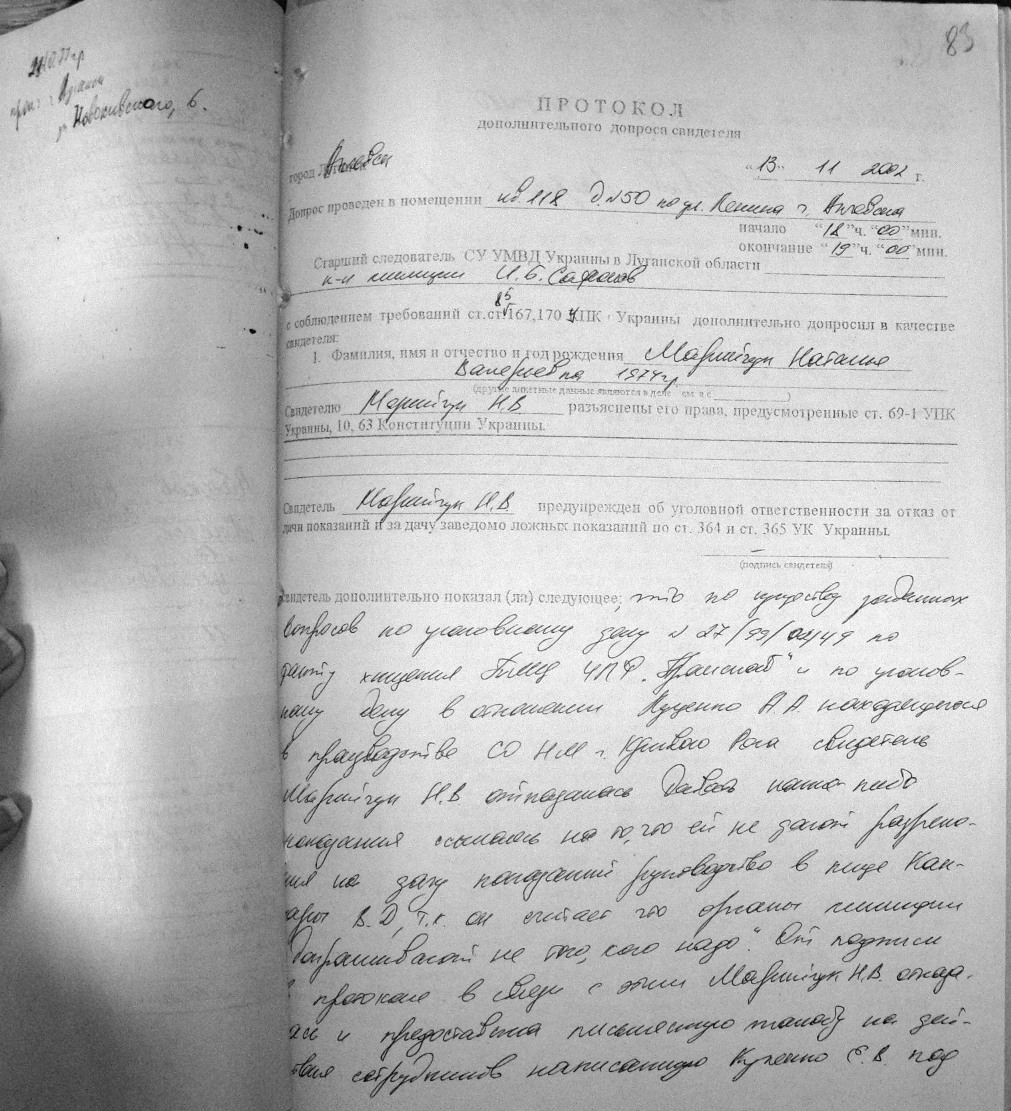 83
ул. Новокиевского, 6.
ПРОТОКОЛ
дополнительного допроса свидетеля
город
"13" 11 2002 г.
Допрос проведен в помещении кв. 118 д. №50 по ул. Ленина г.
начало "18" ч. "00" мин.
окончание "19" ч. "00" мин.
Старший следователь СУ УМВД Украины в Луганской области
к-н милиции И.Б. Сафонов
85
с соблюдением требований ст.ст. 167,170 УПК Украины дополнительно допросил в качестве
свидетеля:
1. Фамилия, имя и отчество и год рождения Марийчук Наталья
Валериевна 1974 г.
(другие анкетные данные имеются в деле см. л.с. )
Свидетелю Марийчук Н.В разъяснены его права, предусмотренные ст. 69-1 УПК
Украины, 10, 63 Конституции Украины.
Свидетель Марийчук Н.В предупрежден об уголовной ответственности за отказ от
дачи показаний и за дачу заведомо ложных показаний по ст. 364 и ст. 365 УК Украины.
(подпись свидетеля)
свидетель дополнительно показал (ла) следующее; что по существу заданных
вопросов по уголовному делу № 27/99/0449 по
факту хищения ТМЦ ЧПФ и по уголов-
ному делу в отношении Куценко А.А находящегося
в производстве СО НМ г. Кривого Рога свидетель
Марийчук Н.В отказалась давать какие-либо
показания ссылаясь на то, что ей не дают разреше-
ния на дачу показаний руководство в лице Кан-
В.Д, т.к. он считает что органы милиции
"допрашивают не того, кого надо". От подписи
в протоколе в связи с этим Марийчук Н.В. отказа-
ась и предоставила письменную жалобу на дей-
твия сотрудников написанную Куценко Е.В. под